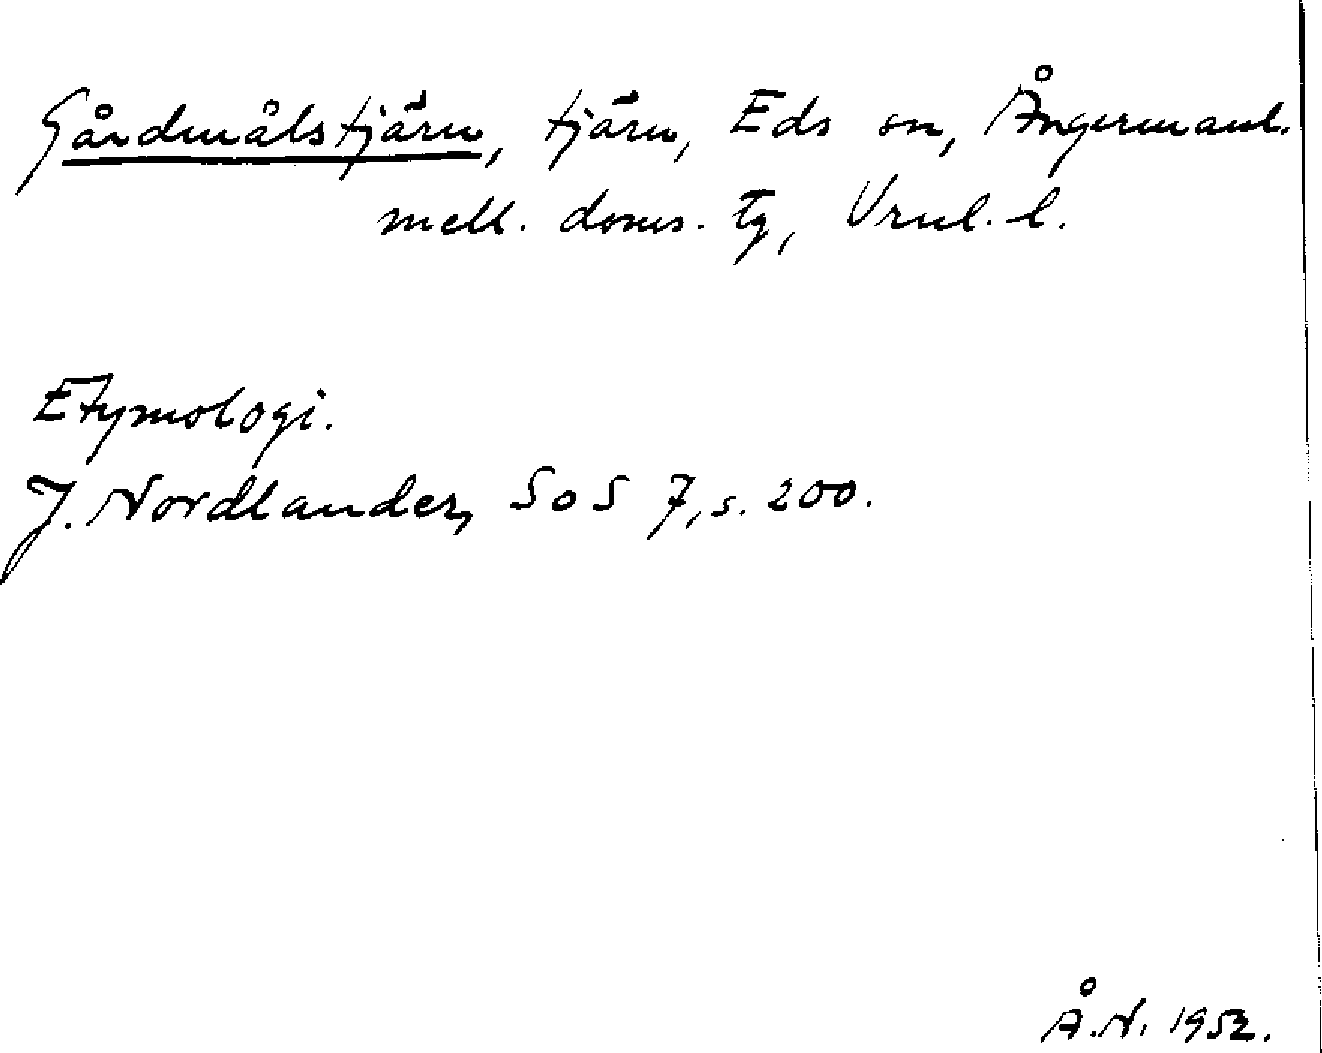 Gårdmålstjärn, tjärn, Eds sn, Ångermanl.
mell. doms. tg, Vnl. l.
Etymologi.
J. Nordlander, SoS 7, s. 200.
Å.N. 1952.